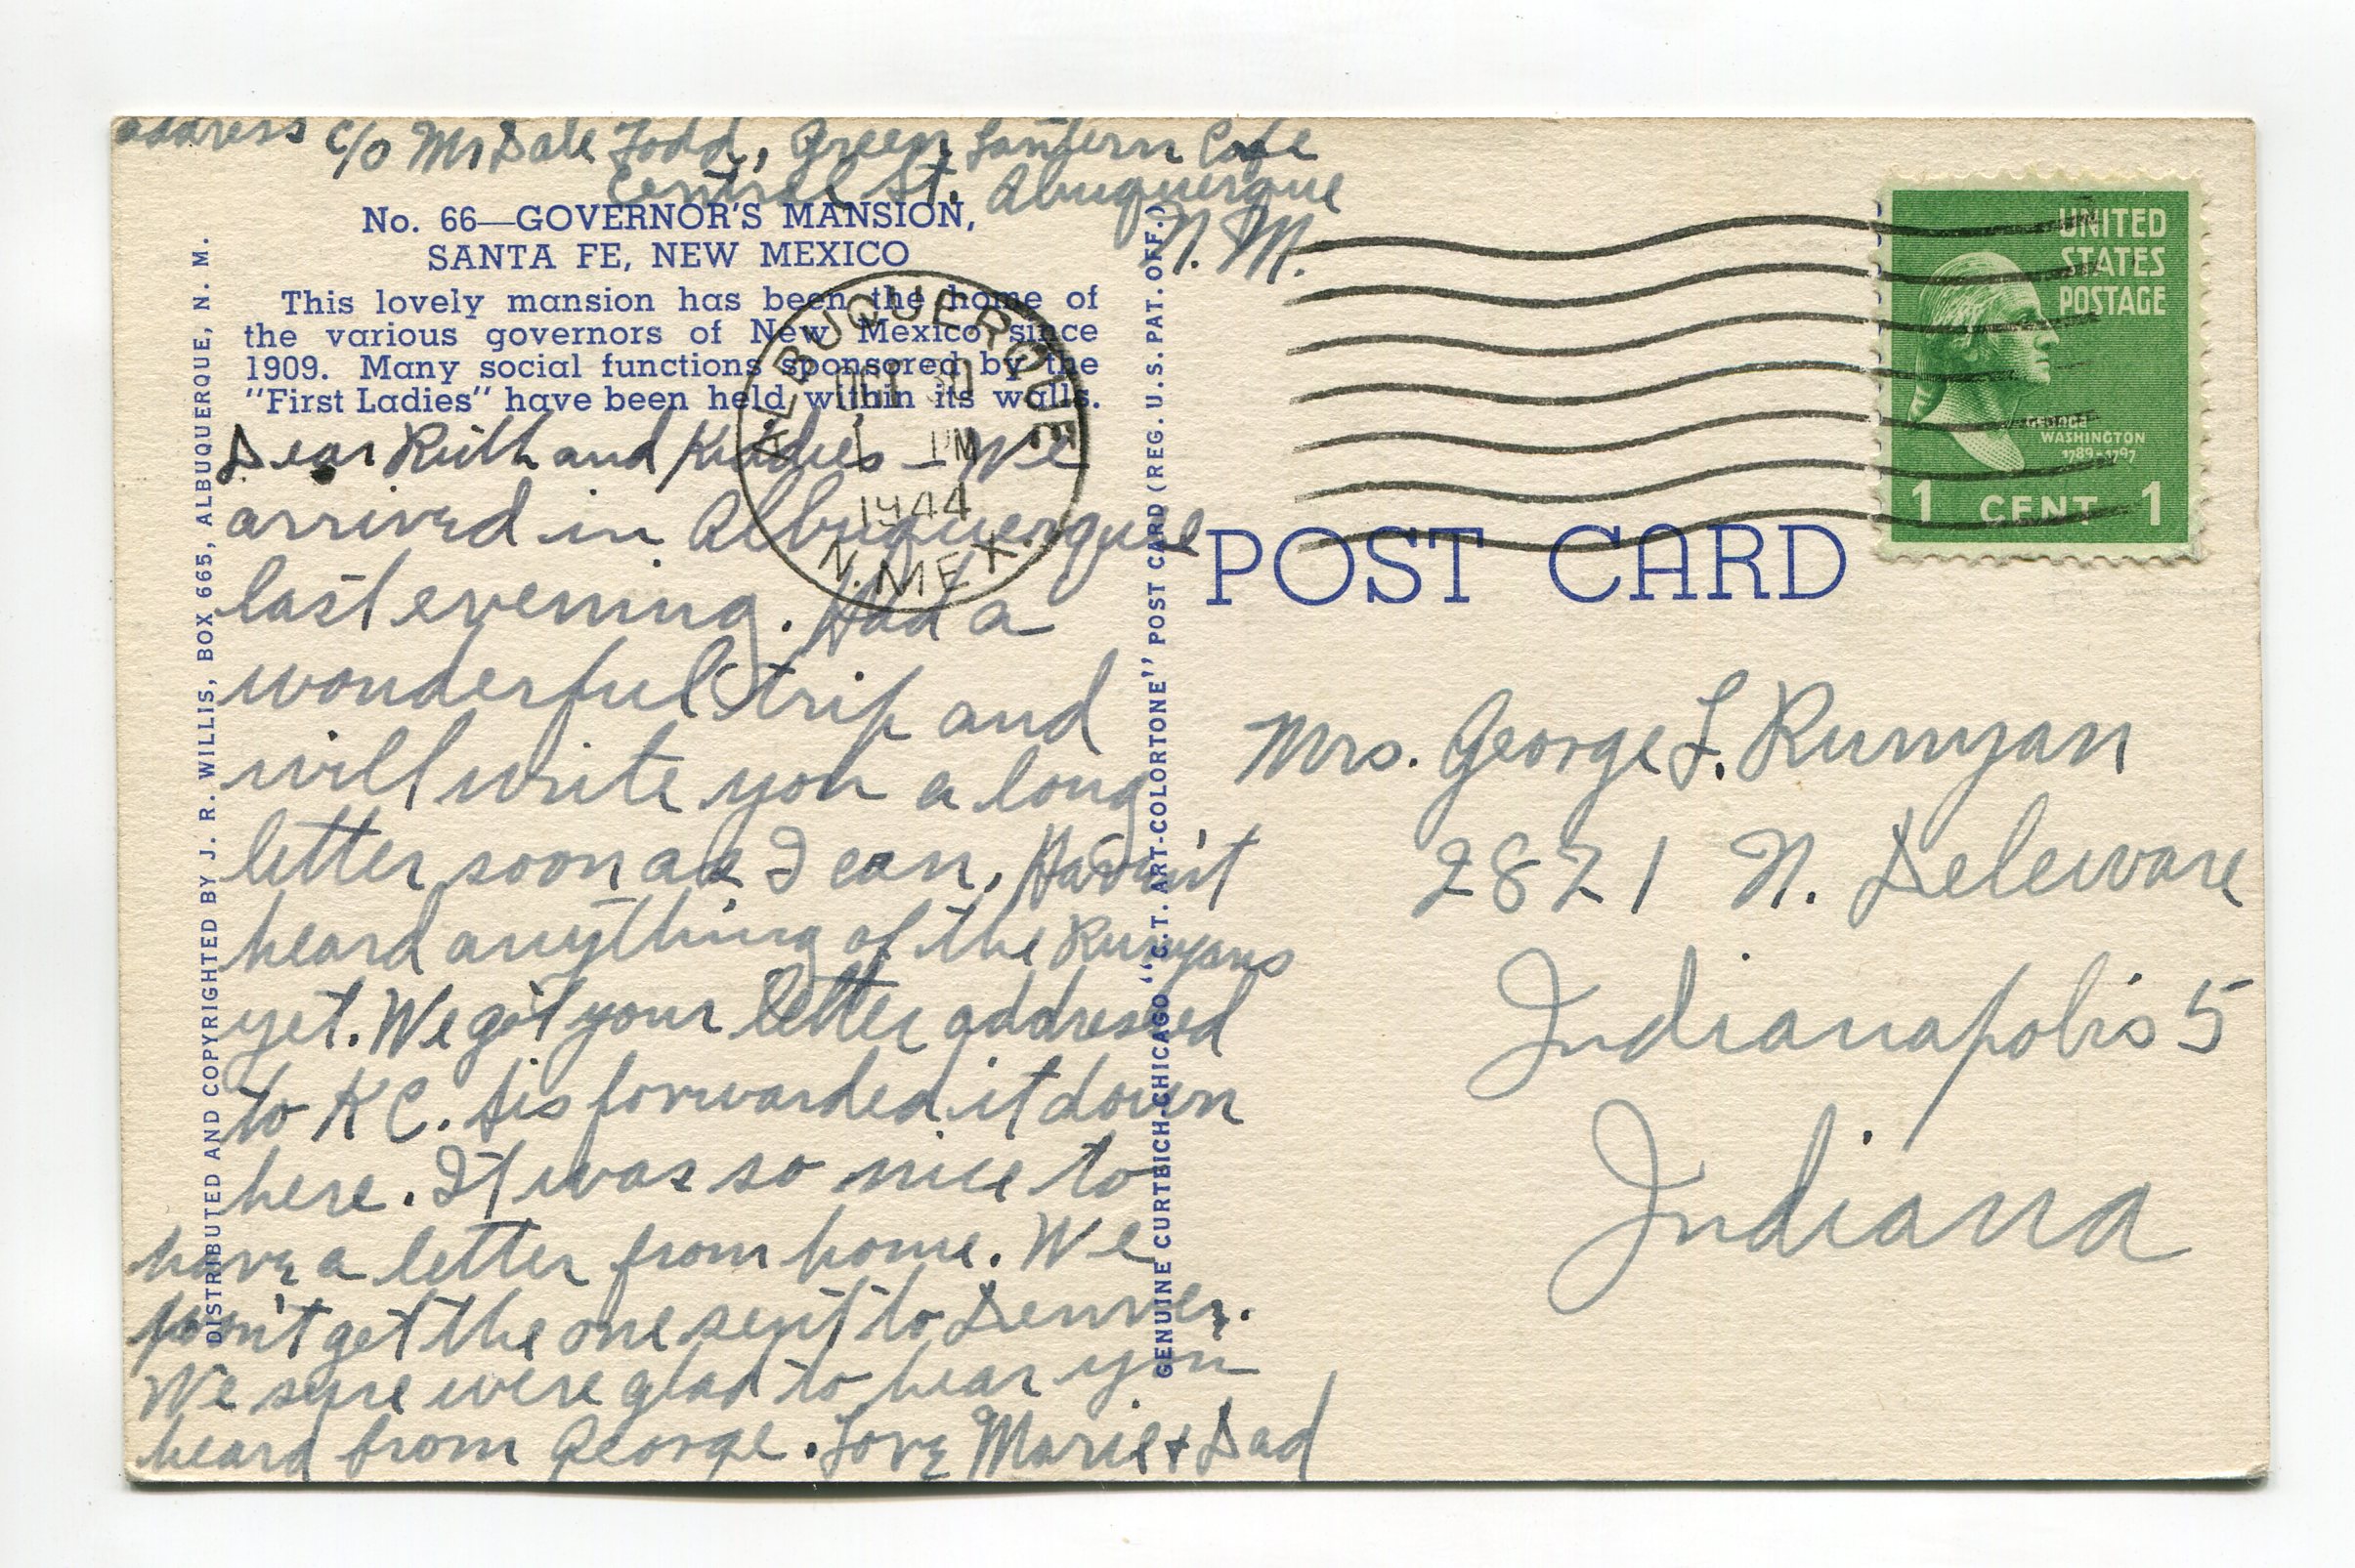 address c/o Mr Dale Todd, Green Lantern Cafe
Central St. Albuquerque
N. M.
No. 66—GOVERNOR'S MANSION,
SANTA FE, NEW MEXICO
This lovely mansion has been the home of
the various governors of New Mexico since
1909. Many social functions sponsored by the
"First Ladies" have been held within its walls.
Dear Ruth and Kiddies – We
arrived in Albuquerque
last evening. Had a
wonderful trip and
will write you a long
letter soon as I can. Havn't
heard anything of the Runyans
yet. We got your letter addressed
to K C. Sis forwarded it down
here. It was so nice to
have a letter from home. We
get the one sent to Denver.
We sure were glad to hear you
heard from George. Love Marie + Dad
DISTRIBUTED AND COPYRIGHTED BY J. R. WILLIS, BOX 665, ALBUQUERQUE, N. M.
GENUINE CURTEICH-CHICAGO "C.T. ART-COLORTONE" POST CARD (REG. U. S. PAT. OFF.)
ALBUQUERQUE
OCT 30
1 PM
1944
N. MEX.
POST CARD
UNITED
STATES
POSTAGE
GEORGE
WASHINGTON
1789-1797
1 CENT 1
Mrs. George L. Runyan
2821 N. Deleware
Indianapolis 5
Indiana